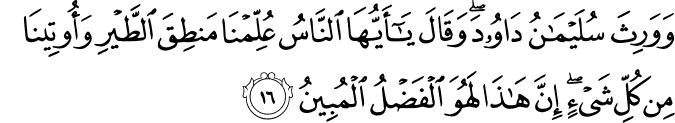 وَوَرِثَ سُلَيْمَٰنُ دَاوُۥدَ ۖ وَقَالَ يَٰٓأَيُّهَا ٱلنَّاسُ عُلِّمْنَا مَنطِقَ ٱلطَّيْرِ وَأُوتِينَا
مِن كُلِّ شَىْءٍ ۖ إِنَّ هَٰذَا لَهُوَ ٱلْفَضْلُ ٱلْمُبِينُ ١٦